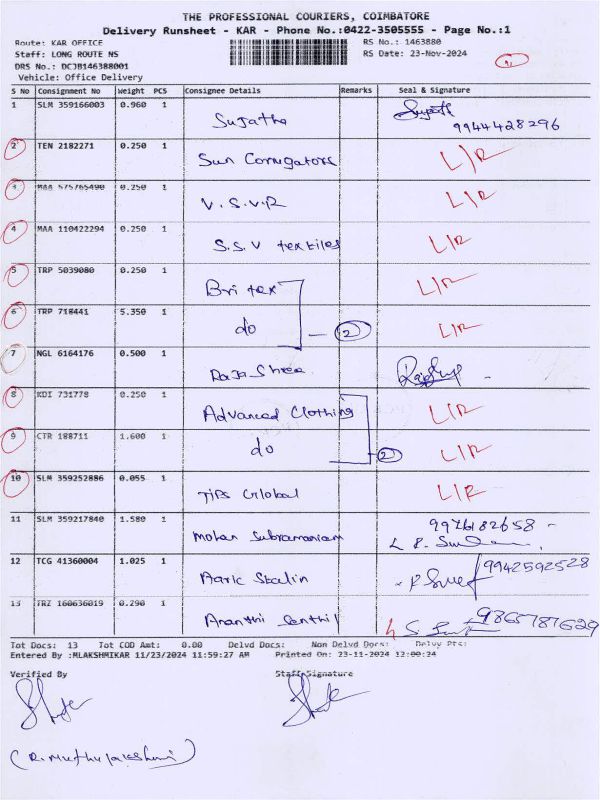 THE PROFESSIONAL COURIERS, COIMBATORE
Delivery Runsheet - KAR - Phone No.:0422-3505555 - Page No.:1
Route: KAR OFFICE RS No.: 1463880
Staff: LONG ROUTE NS RS Date: 23-Nov-2024
DRS No.: DCJB146388001
Vehicle: Office Delivery
S No Consignment No Weight PCS Consignee Details Remarks Seal & Signature
1 SLM 359166003 0.960 1 Sujatha 9944428296
2 TEN 2182271 0.250 1 Sun Corrugators L/R
3 MAA 575765490 0.250 1 V.S.V.R L/R
4 MAA 110422294 0.250 1 S.S.V textiles L/R
5 TRP 5039080 0.250 1 Bri tex L/R
6 TRP 718441 5.350 1 do 2 L/R
7 NGL 6164176 0.500 1 Raja Shree
8 KDI 731778 0.250 1 Advanced Clothing L/R
9 CTR 188711 1.600 1 do 2 L/R
10 SLM 359252886 0.055 1 Tips Global L/R
11 SLM 359217840 1.580 1 Mohan Subramaniam 9976182658
12 TCG 41360004 1.025 1 Aaric Stalin 9942592528
13 TRZ 160636019 0.290 1 Ananthi Senthil 9865787629
Tot Docs: 13 Tot COD Amt: 0.00 Delvd Docs: Non Delvd Docs: Delvy Pts:
Entered By :MLAKSHMIKAR 11/23/2024 11:59:27 AM Printed On: 23-11-2024 12:00:24
Verified By Staff Signature
(R. Muthulakshmi)